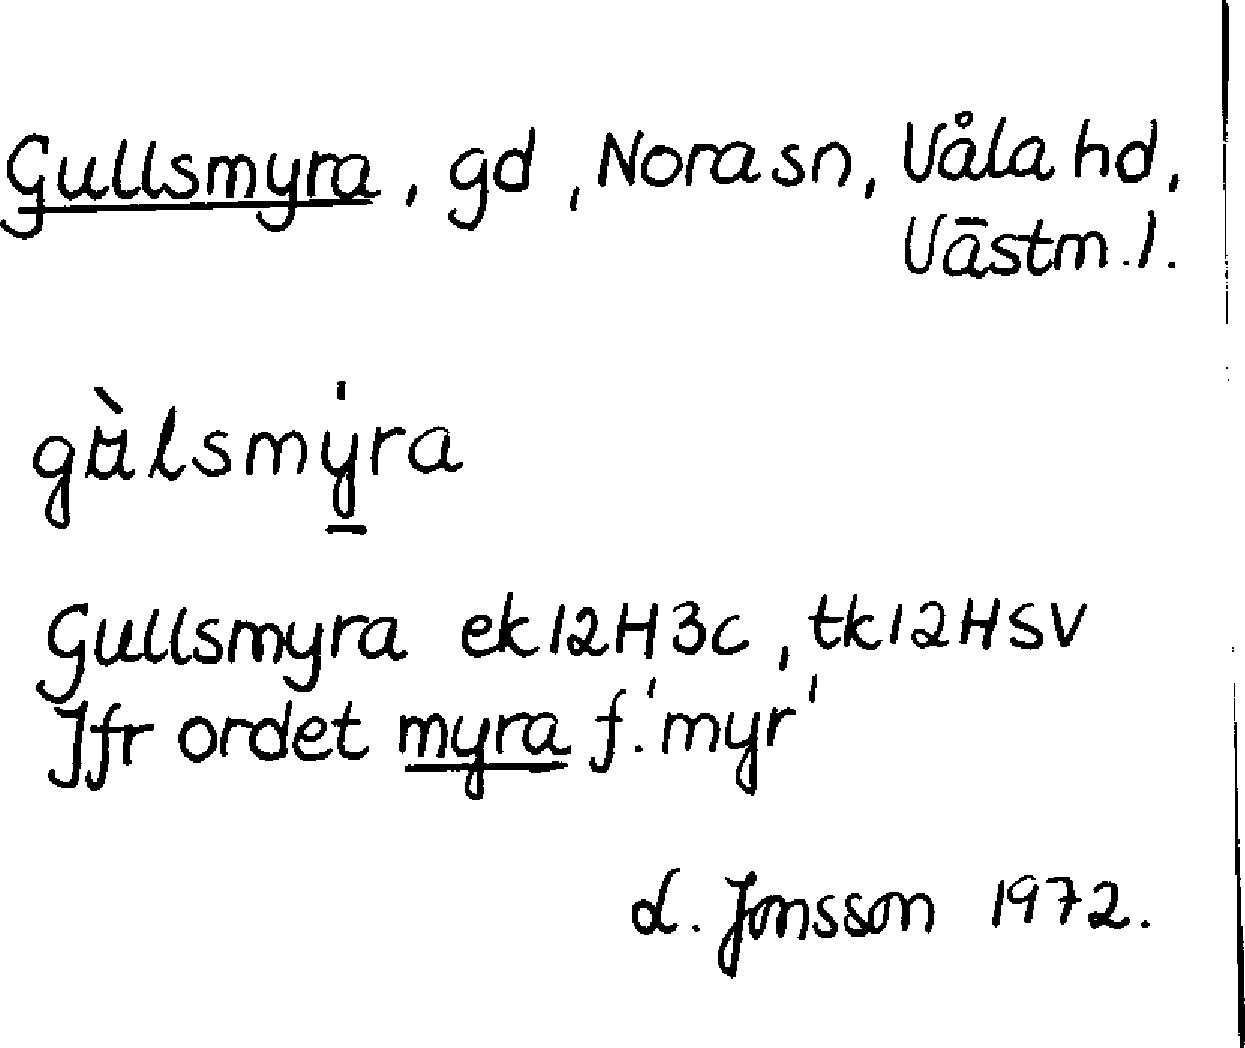 Gullsmyra, gd, Nora sn, Våla hd,
Västm. l.
gʉ̀lsmy̠̍ra
Gullsmyra ek 12H3c, tk 12HSV
Jfr ordet myra f. 'myr'
L. Jonsson 1972.